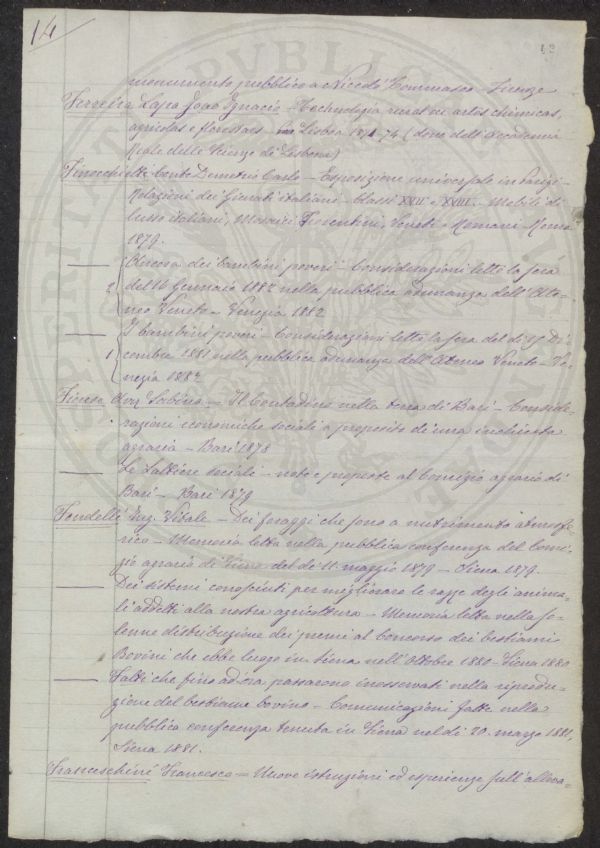 14
monumento pubblico a Niccolò Tommaseo - Firenze
Ferreira Lapa Joao Ignacio - Technologia rural ou artes chimicas,
agricolas e florestaes - Lisboa 1871-74 (dono dell'Accademia
Reale delle Scienze di Lisbona)
Finocchietti Conte Demetrio Carlo - Esposizione universale in Parigi -
Relazioni dei Giurati italiani - Classi XVII e XVIII - Mobili di
lusso italiani, Mosaici Fiorentini, Veneti e Romani - Roma
1879.
— Ancora dei bambini poveri - Considerazioni lette la sera
2 del 16 Gennaio 1882 nella pubblica adunanza dell'Ate-
neo Veneto - Venezia 1882
— I bambini poveri - Considerazioni lette la sera del dì 15 Di-
1 cembre 1881 nella pubblica adunanza dell'Ateneo Veneto - Ve-
nezia 1882
Fiorese Sabino - Il Contadino nella terra di Bari - Conside-
razioni economiche sociali a proposito di una inchiesta
agraria - Bari 1878
— Le Lattiere sociali - note e proposte al Comizio agrario di
Bari - Bari 1879
Fondelli Ing. Vitale - Dei foraggi che sono a nutrimento atmosfe-
rico - Memoria letta nella pubblica conferenza del Comi-
zio agrario di Siena del dì 11 maggio 1879 - Siena 1879.
— Dei sistemi conosciuti per migliorare le razze degli anima-
li addetti alla nostra agricoltura - Memoria letta nella so-
lenne distribuzione dei premi al Concorso dei bestiami
Bovini che ebbe luogo in Siena nell'Ottobre 1880 - Siena 1880
— Fatti che fino ad ora passarono inosservati nella riprodu-
zione del bestiame bovino - Comunicazioni fatte nella
pubblica conferenza tenuta in Siena nel dì 20. marzo 1881,
Siena 1881.
Franceschini Francesco - Nuove istruzioni ed esperienze sull'alleva-